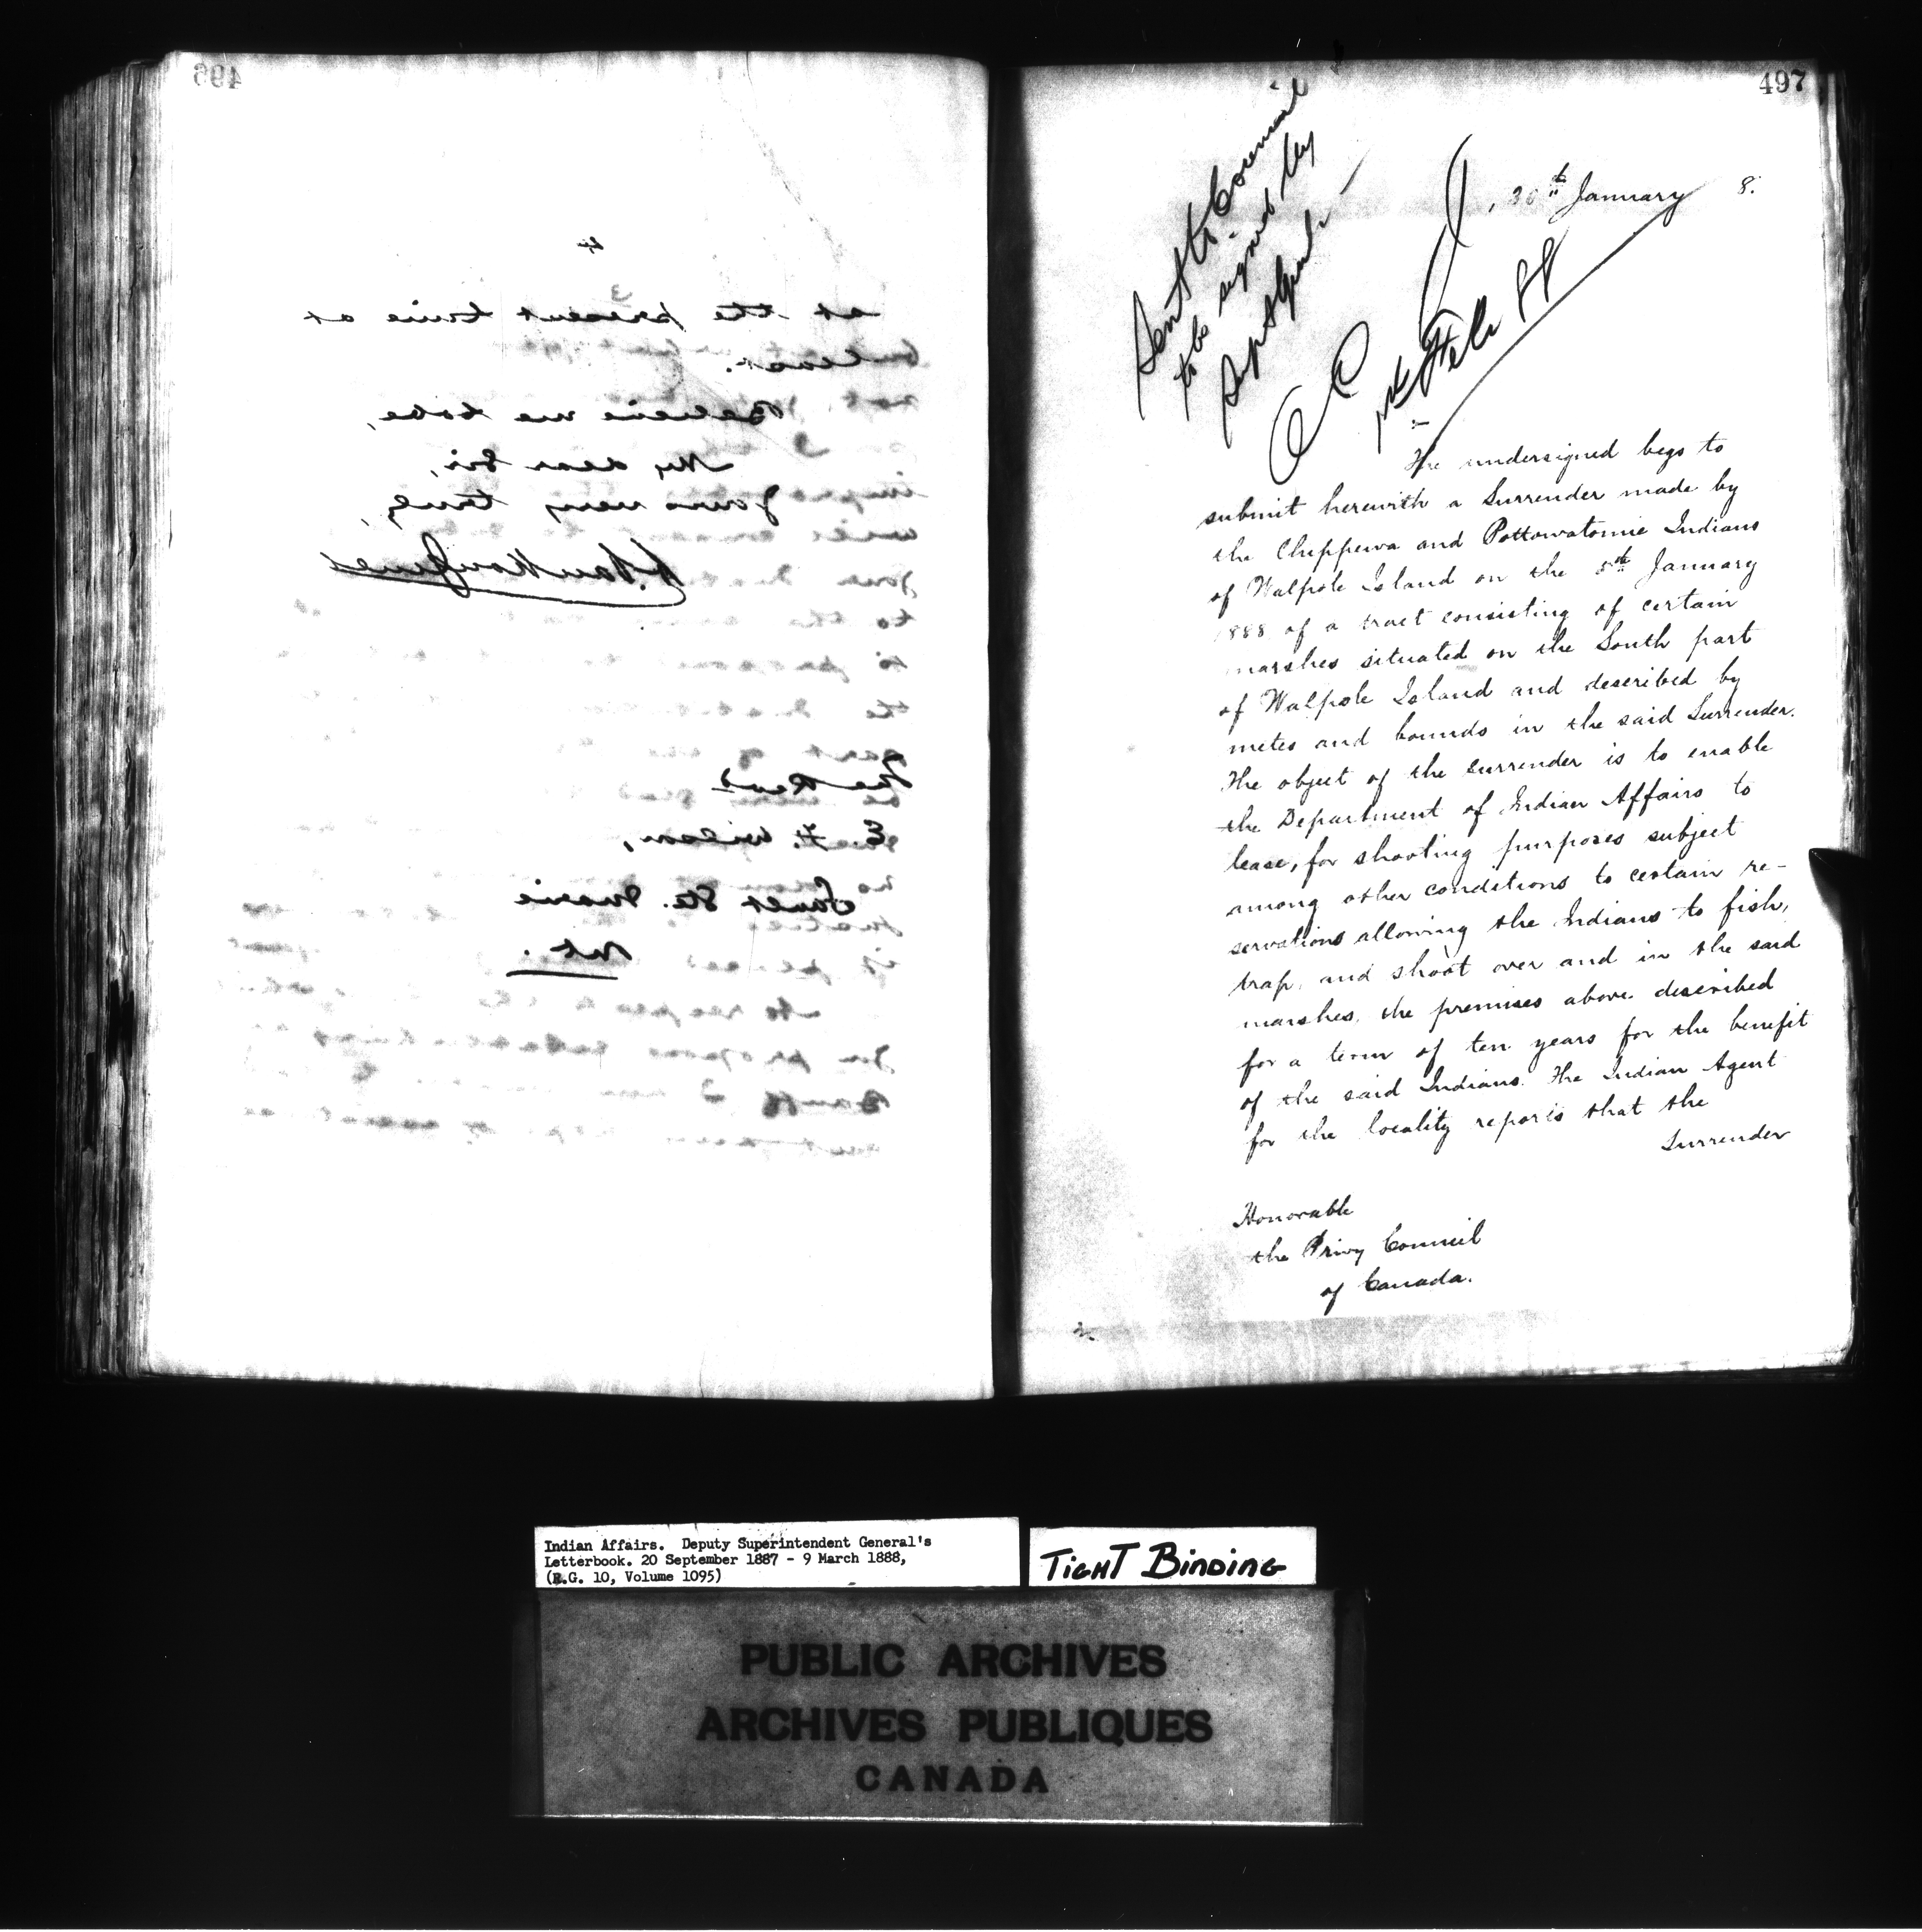 496
4
at the present time at
least.
Believe me to be,
My dear Sir,
Yours very truly,
L. Vankoughnet
The Revd
E. F. Wilson,
Sault Ste. Marie
Ont.
497
Sent to Council
to be signed by
Supt Genl
1st Feb 88
, 30th January 8.
The undersigned begs to
submit herewith a Surrender made by
the Chippewa and Pottowatomie Indians
of Walpole Island on the 5th January
1888 of a tract consisting of certain
marshes situated on the South part
of Walpole Island and described by
metes and bounds in the said Surrender.
The object of the Surrender is to enable
the Department of Indian Affairs to
lease, for shooting purposes subject
among other conditions to certain re-
servations allowing the Indians to fish,
trap, and shoot over and in the said
marshes, the premises above described
for a term of ten years for the benefit
of the said Indians. The Indian Agent
for the locality reports that the
Surrender
Honorable
the Privy Council
of Canada.
Indian Affairs. Deputy Superintendent General's
Letterbook. 20 September 1887 - 9 March 1888,
(R.G. 10, Volume 1095)
TIGHT BINDING
PUBLIC ARCHIVES
ARCHIVES PUBLIQUES
CANADA